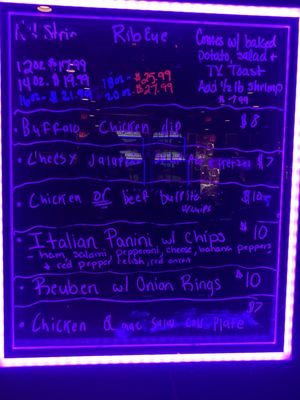 NY Strip RibEye
Comes w/ baked
potato, salad +
TX Toast
Add 1/2 lb shrimp
$7.99
12oz $17.99
14oz. $19.99
16oz $21.99
18oz - $25.99
20oz. $27.99
• Buffalo Chicken dip $8
• Cheesy Jalapeno pretzel $7
• Chicken or beef burrito $10
w/chips
• Italian Panini w/ Chips $10
- ham, salami, pepperoni, cheese, banana peppers
+ red pepper relish, red onion
• Reuben w/ Onion Rings $10
$7
• Chicken & mac salad cold Plate